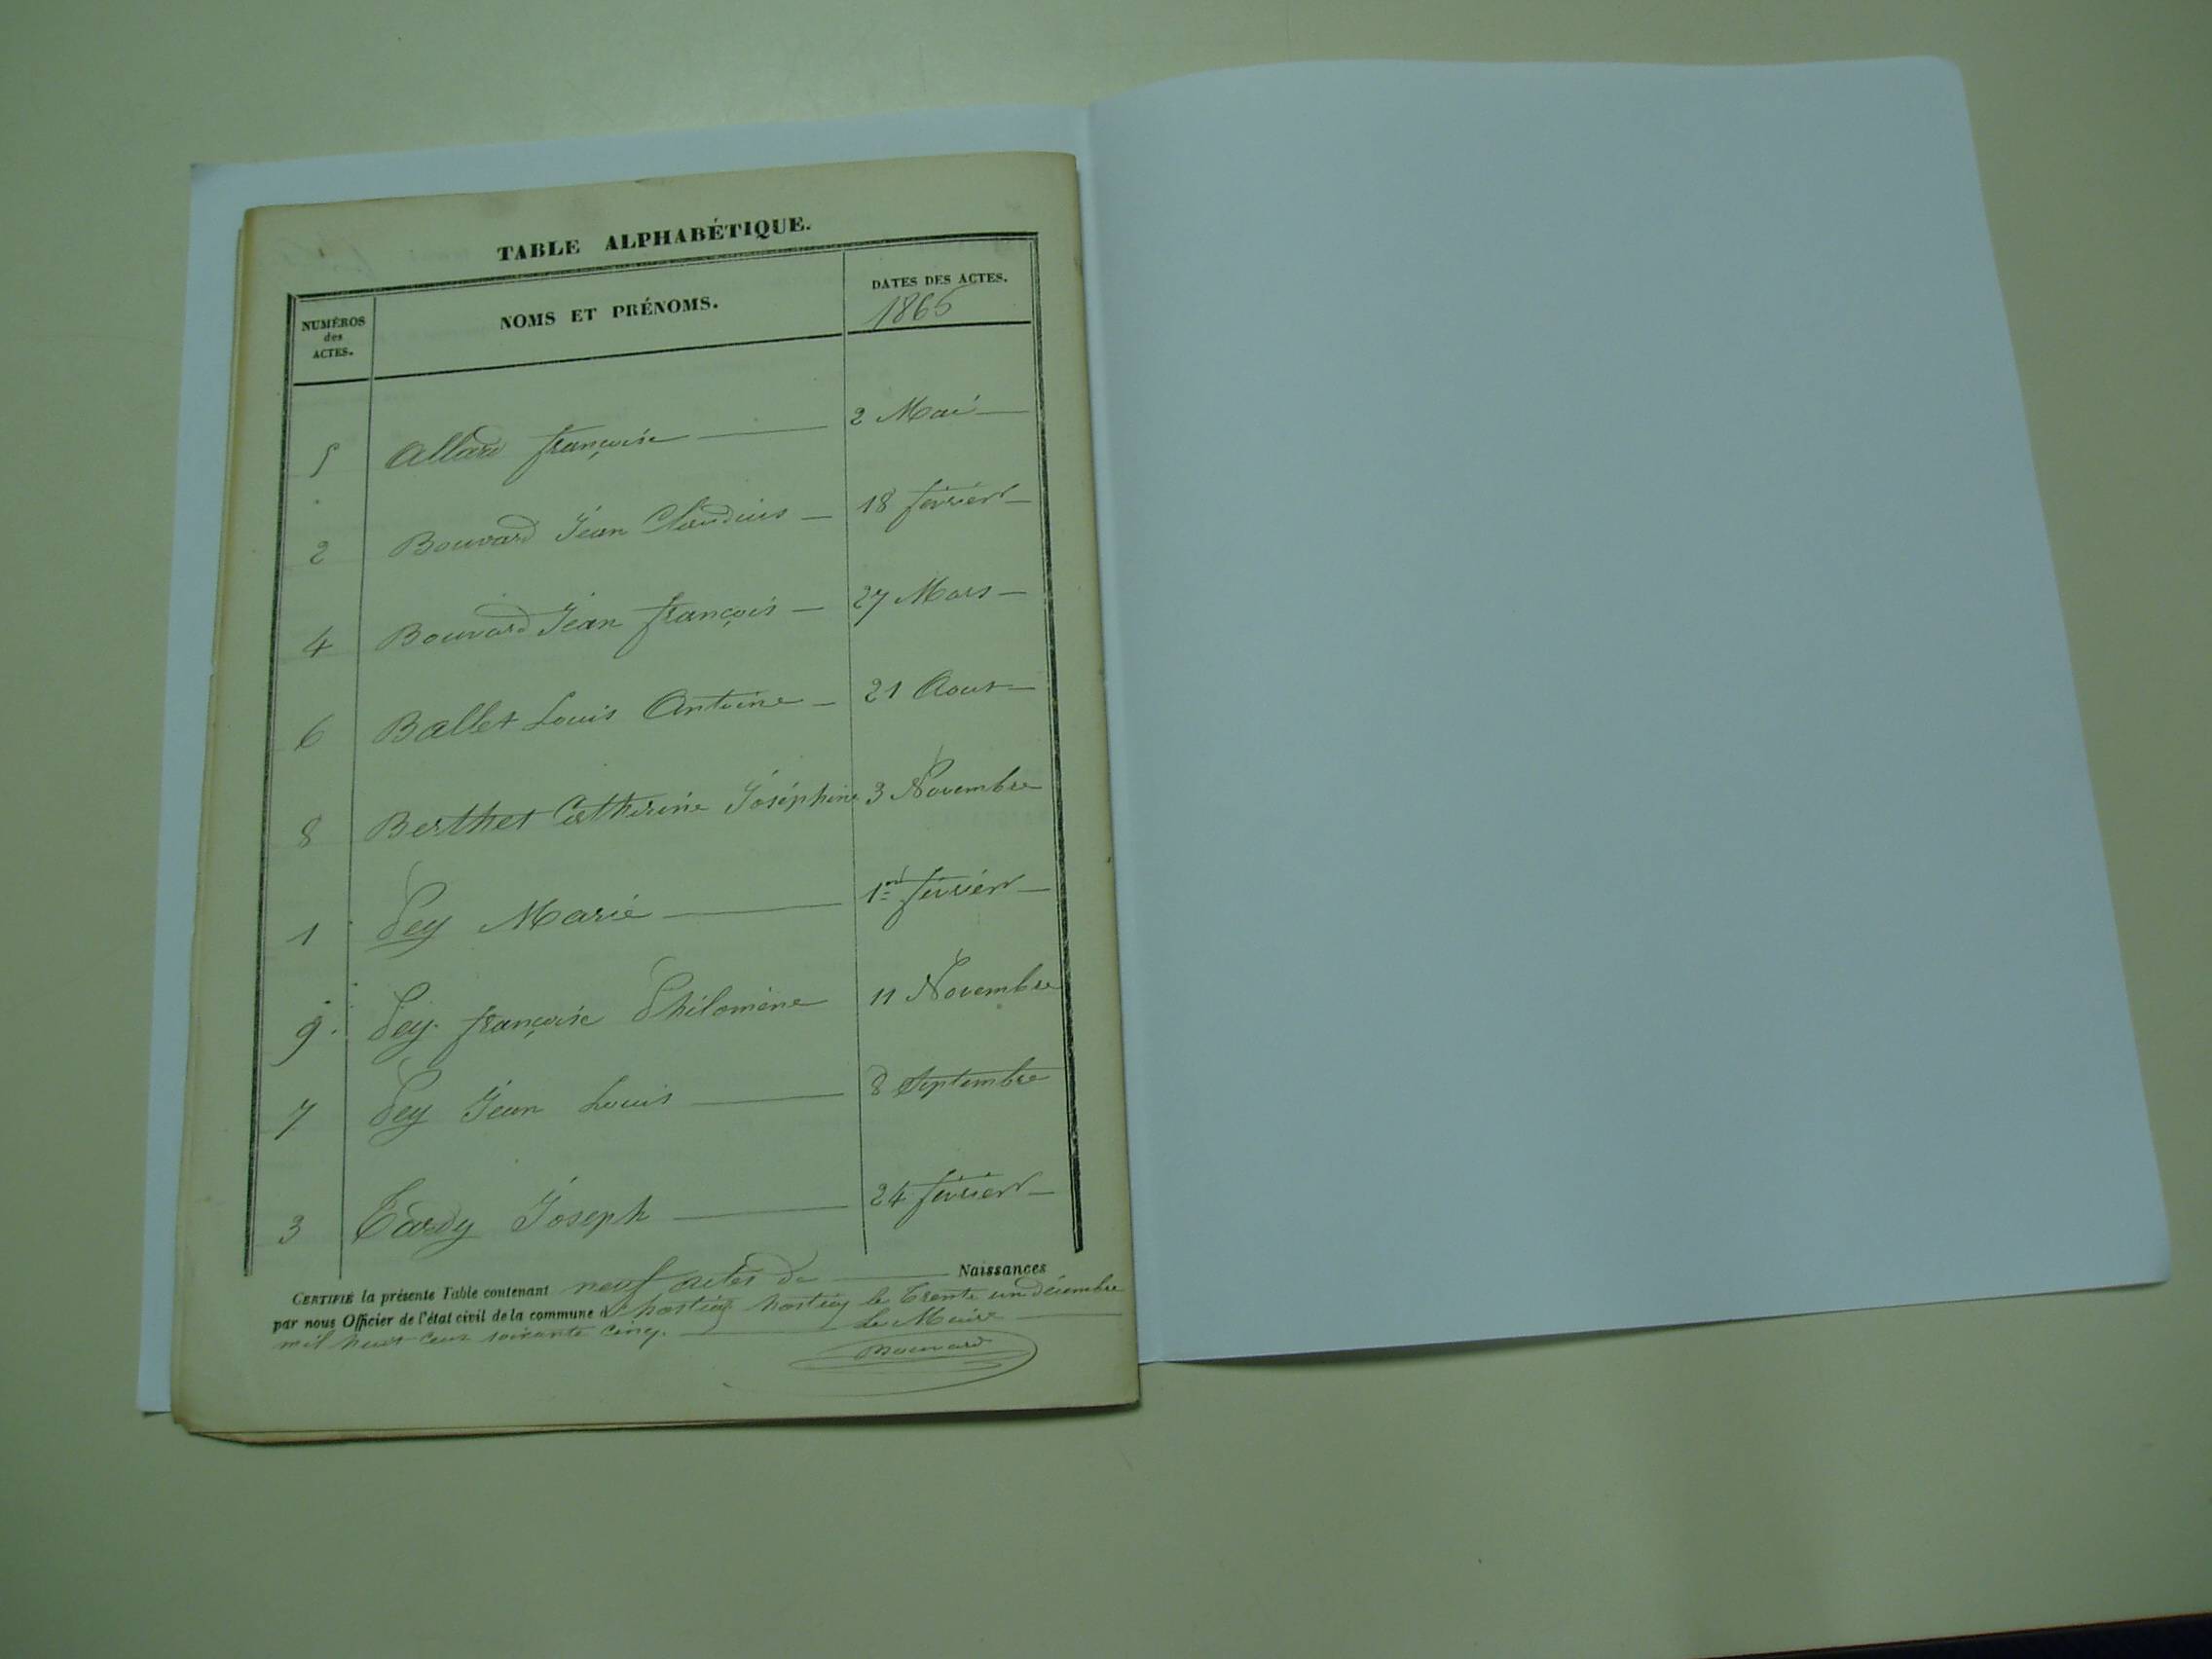 TABLE ALPHABÉTIQUE.
NUMÉROS des ACTES.
NOMS ET PRÉNOMS.
DATES DES ACTES.
1865
5 Allard françoise 2 Mai
2 Bouvard Jéan Claudius 18 février
4 Bouvard Jéan françois 27 Mars
6 Ballet Louis Antoine 21 Aout
8 Berthet Cathérine Joséphine 3 Novembre
1 Pey Marie 1er février
9 Pey françoise Philomène 11 Novembre
7 Pey Jéan Louis 8 Septembre
3 Tardy Joseph 24 février
CERTIFIÉ la présente Table contenant neuf actes de Naissances
par nous Officier de l'état civil de la commune d le Trente un décembre
mil huit cent soixante cinq. Le Maire
Bouvard